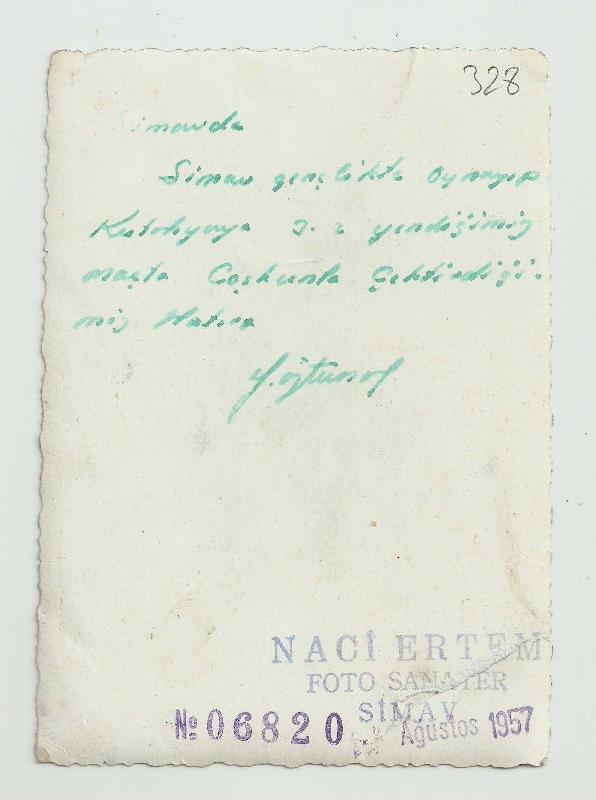 328
Simavda
Simav gençlikte Oynayıp
Kutahyayı 3.2 yendiğimiz
maçta Coşkunla Çektirdiği-
miz Hatıra
NACİ ERTEM
FOTO SANATER
SİMAV
№ 06820 Ağustos 1957